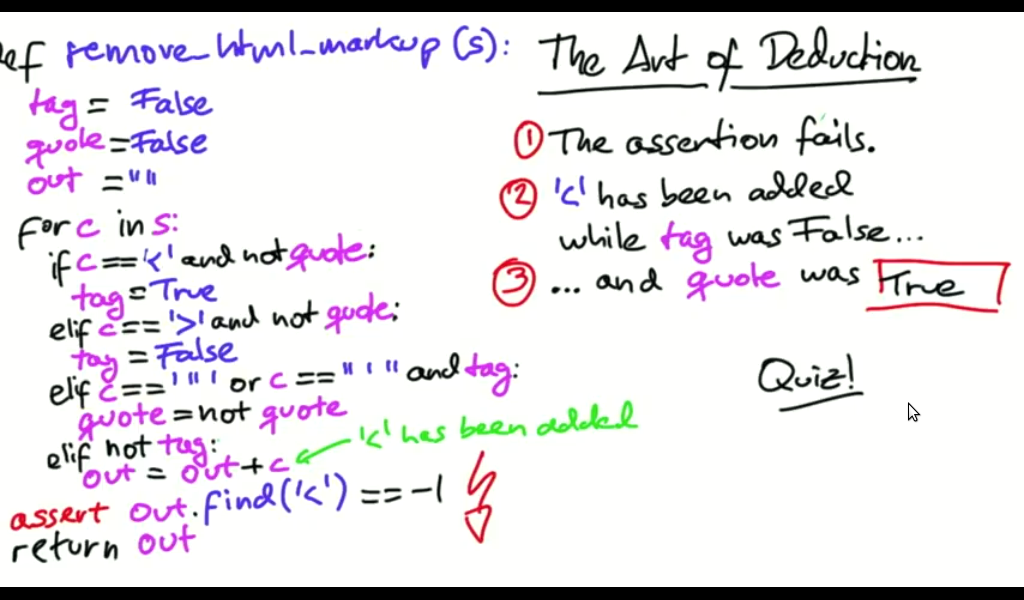 ef remove_html_markup (s):
tag = False
quote = False
out = ""
for c in s:
if c == '<' and not quote:
tag = True
elif c == '>' and not quote:
tag = False
elif c == '"' or c == "'" and tag:
quote = not quote
elif not tag:
out = out + c
'<' has been added
assert out.find('<') == -1
return out
The Art of Deduction
1 The assertion fails.
2 '<' has been added
while tag was False...
3 ... and quote was True
Quiz!